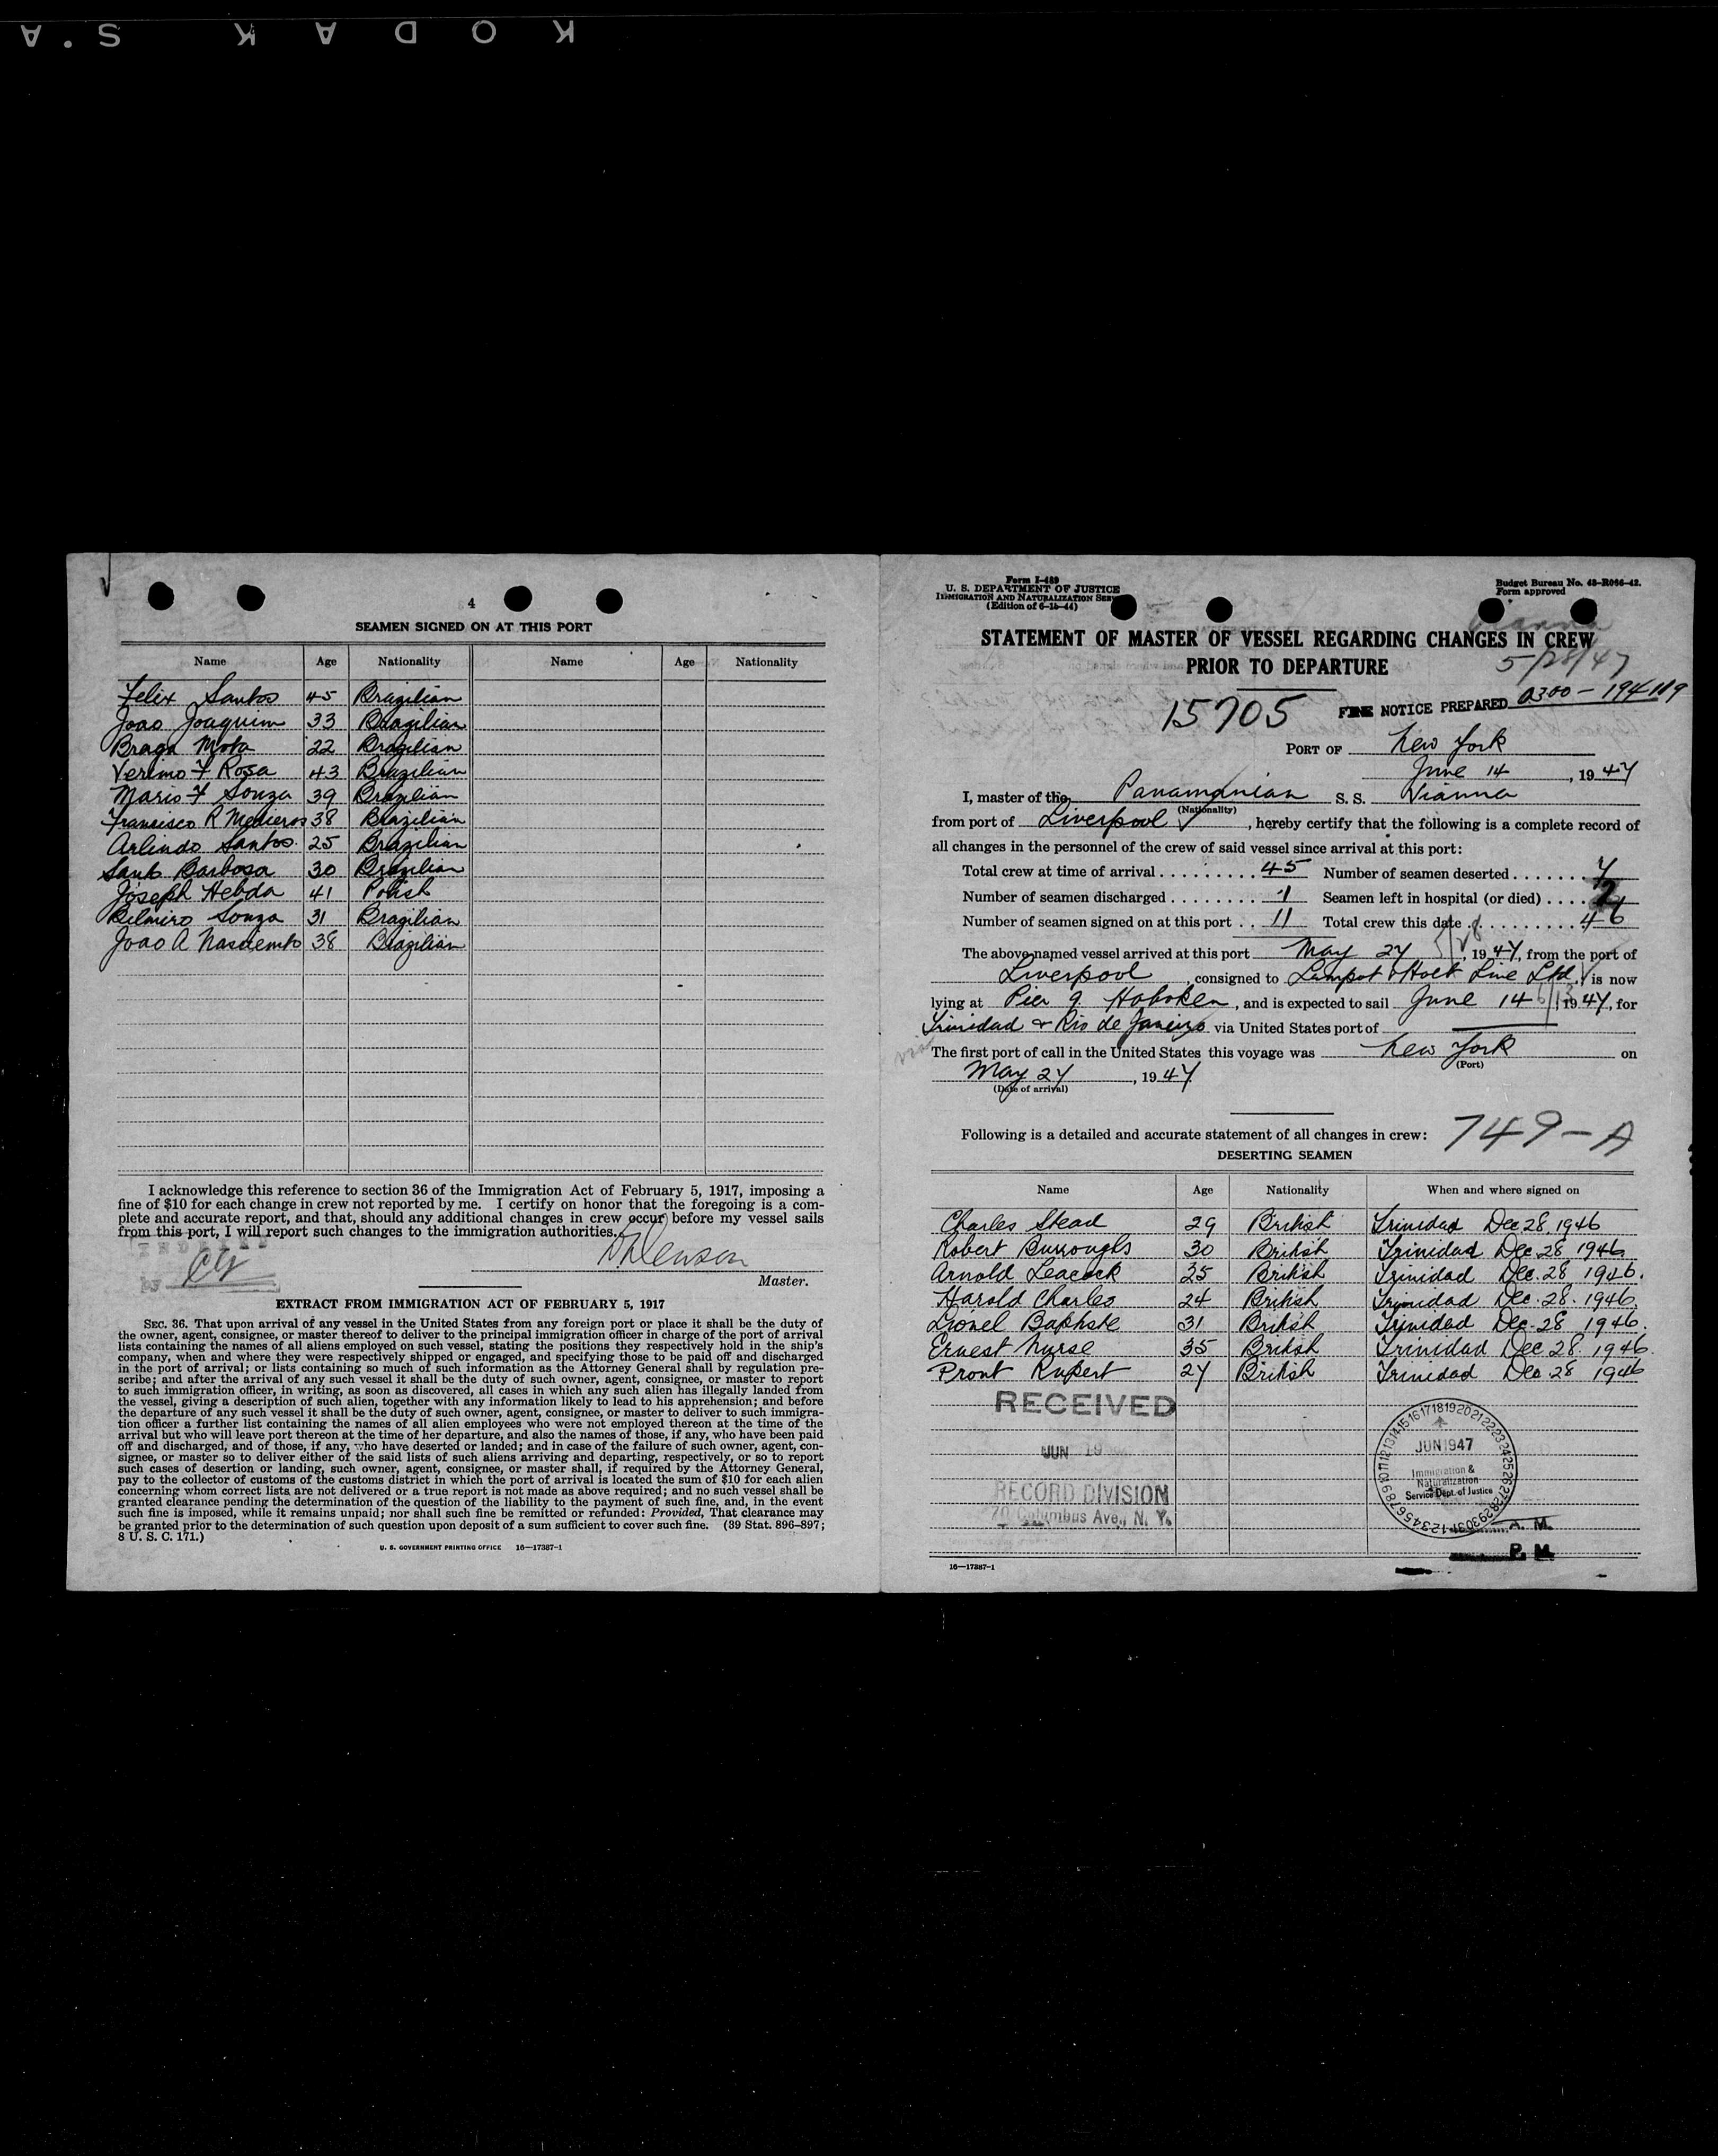 KODAK S.A
4
SEAMEN SIGNED ON AT THIS PORT
Name Age Nationality Name Age Nationality
Felix Santos 45 Brazilian
Joao Joaquim 33 Brazilian
Braga Mota 22 Brazilian
Verimo F Rosa 43 Brazilian
Mario F Souza 39 Brazilian
Francisco R Medieros 38 Brazilian
Arlindo Santos 25 Brazilian
Santo Barbosa 30 Brazilian
Joseph Hebda 41 Polish
Belmiro Souza 31 Brazilian
Joao A Nascemto 38 Brazilian
I acknowledge this reference to section 36 of the Immigration Act of February 5, 1917, imposing a
fine of $10 for each change in crew not reported by me. I certify on honor that the foregoing is a com-
plete and accurate report, and that, should any additional changes in crew occur before my vessel sails
from this port, I will report such changes to the immigration authorities.
Master.
EXTRACT FROM IMMIGRATION ACT OF FEBRUARY 5, 1917
SEC. 36. That upon arrival of any vessel in the United States from any foreign port or place it shall be the duty of
the owner, agent, consignee, or master thereof to deliver to the principal immigration officer in charge of the port of arrival
lists containing the names of all aliens employed on such vessel, stating the positions they respectively hold in the ship's
company, when and where they were respectively shipped or engaged, and specifying those to be paid off and discharged
in the port of arrival; or lists containing so much of such information as the Attorney General shall by regulation pre-
scribe; and after the arrival of any such vessel it shall be the duty of such owner, agent, consignee, or master to report
to such immigration officer, in writing, as soon as discovered, all cases in which any such alien has illegally landed from
the vessel, giving a description of such alien, together with any information likely to lead to his apprehension; and before
the departure of any such vessel it shall be the duty of such owner, agent, consignee, or master to deliver to such immigra-
tion officer a further list containing the names of all alien employees who were not employed thereon at the time of the
arrival but who will leave port thereon at the time of her departure, and also the names of those, if any, who have been paid
off and discharged, and of those, if any, who have deserted or landed; and in case of the failure of such owner, agent, con-
signee, or master so to deliver either of the said lists of such aliens arriving and departing, respectively, or so to report
such cases of desertion or landing, such owner, agent, consignee, or master shall, if required by the Attorney General,
pay to the collector of customs of the customs district in which the port of arrival is located the sum of $10 for each alien
concerning whom correct lists are not delivered or a true report is not made as above required; and no such vessel shall be
granted clearance pending the determination of the question of the liability to the payment of such fine, and, in the event
such fine is imposed, while it remains unpaid; nor shall such fine be remitted or refunded: Provided, That clearance may
be granted prior to the determination of such question upon deposit of a sum sufficient to cover such fine. (39 Stat. 896-897;
8 U. S. C. 171.)
U. S. GOVERNMENT PRINTING OFFICE 16—17387-1
Form I-489
U. S. DEPARTMENT OF JUSTICE
IMMIGRATION AND NATURALIZATION SERV
(Edition of 6-15-44)
Budget Bureau No. 43-R066-42.
Form approved
STATEMENT OF MASTER OF VESSEL REGARDING CHANGES IN CREW
PRIOR TO DEPARTURE
5/28/47
15705
FINE NOTICE PREPARED 0300-194119
PORT OF New York
June 14, 1947
I, master of the Panamanian S. S. Vianna
(Nationality)
from port of Liverpool, hereby certify that the following is a complete record of
all changes in the personnel of the crew of said vessel since arrival at this port:
Total crew at time of arrival 45 Number of seamen deserted 7
Number of seamen discharged 1 Seamen left in hospital (or died) 2
Number of seamen signed on at this port 11 Total crew this date 46
The above-named vessel arrived at this port May 27 5/28, 1947, from the port of
Liverpool, consigned to Lamport & Holt Line Ltd, is now
lying at Pier 9. Hoboken, and is expected to sail June 14 6/13, 1947, for
Trinidad & Rio de Janeiro via United States port of
The first port of call in the United States this voyage was New York on
(Port)
May 27, 1947
(Date of arrival)
Following is a detailed and accurate statement of all changes in crew: 749-A
DESERTING SEAMEN
Name Age Nationality When and where signed on
Charles Stead 29 British Trinidad Dec 28, 1946
Robert Burroughs 30 British Trinidad Dec 28 1946
Arnold Leacock 25 British Trinidad Dec. 28 1946.
Harold Charles 24 British Trinidad Dec. 28. 1946
Lionel Baptiste 31 British Trinidad Dec. 28 1946.
Ernest Nurse 35 British Trinidad Dec 28. 1946.
Pront Rupert 27 British Trinidad Dec 28 1946
RECEIVED
JUN 19
RECORD DIVISION
70 Columbus Ave., N. Y.
JUN 1947
Immigration &
Naturalization
Service Dept. of Justice
A. M.
P. M.
16—17387-1